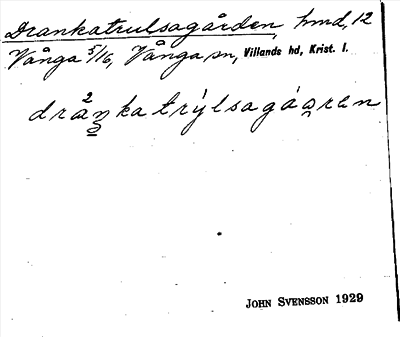 Drankatrulsagården, hmd, 12
Vånga 5/16, Vånga sn, Villands hd, Krist. l.
2
drãṉkatrýlsagáa̯ren
JOHN SVENSSON 1929